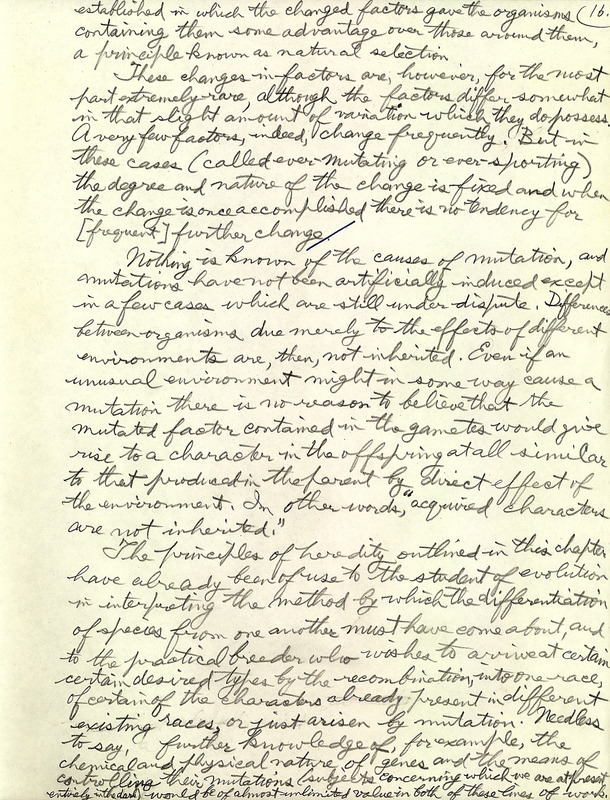 established in which the changed factors gave the organisms (16.
containing them some advantage over those around them,
a principle known as natural selection
These changes in factors are, however, for the most
part extremely rare, although the factors differ somewhat
in that slight amount of variation which they do possess.
A very few factors, indeed, change frequently. But in
these cases (called ever-mutating or ever-sporting)
the degree and nature of the change is fixed and when
the change is once accomplished there is no tendency for
[frequent] further change.
Nothing is known of the causes of mutation, and
mutations have not been artificially induced except
in a few cases which are still under dispute. Differences
between organisms due merely to the effects of different
environments are, then, not inherited. Even if an
unusual environment might in some way cause a
mutation there is no reason to believe that the
mutated factor contained in the gametes would give
rise to a character in the offspring at all similar
to that produced in the parent by direct effect of
the environment. In other words, "acquired characters
are not inherited."
The principles of heredity outlined in this chapter
have already been of use to the student of evolution
in interpreting the method by which the differentiation
of species from one another must have come about, and
to the practical breeder who wishes to arrive at certain
certain desired types by the recombination, into one race,
of certain of the characters already present in different
existing races, or just arisen by mutation. Needless
to say, further knowledge of, for example, the
chemical and physical nature of genes and the means of
controlling their mutations (subjects concerning which we are at present
entirely in the dark) would be of almost unlimited value in both of these lines of work.